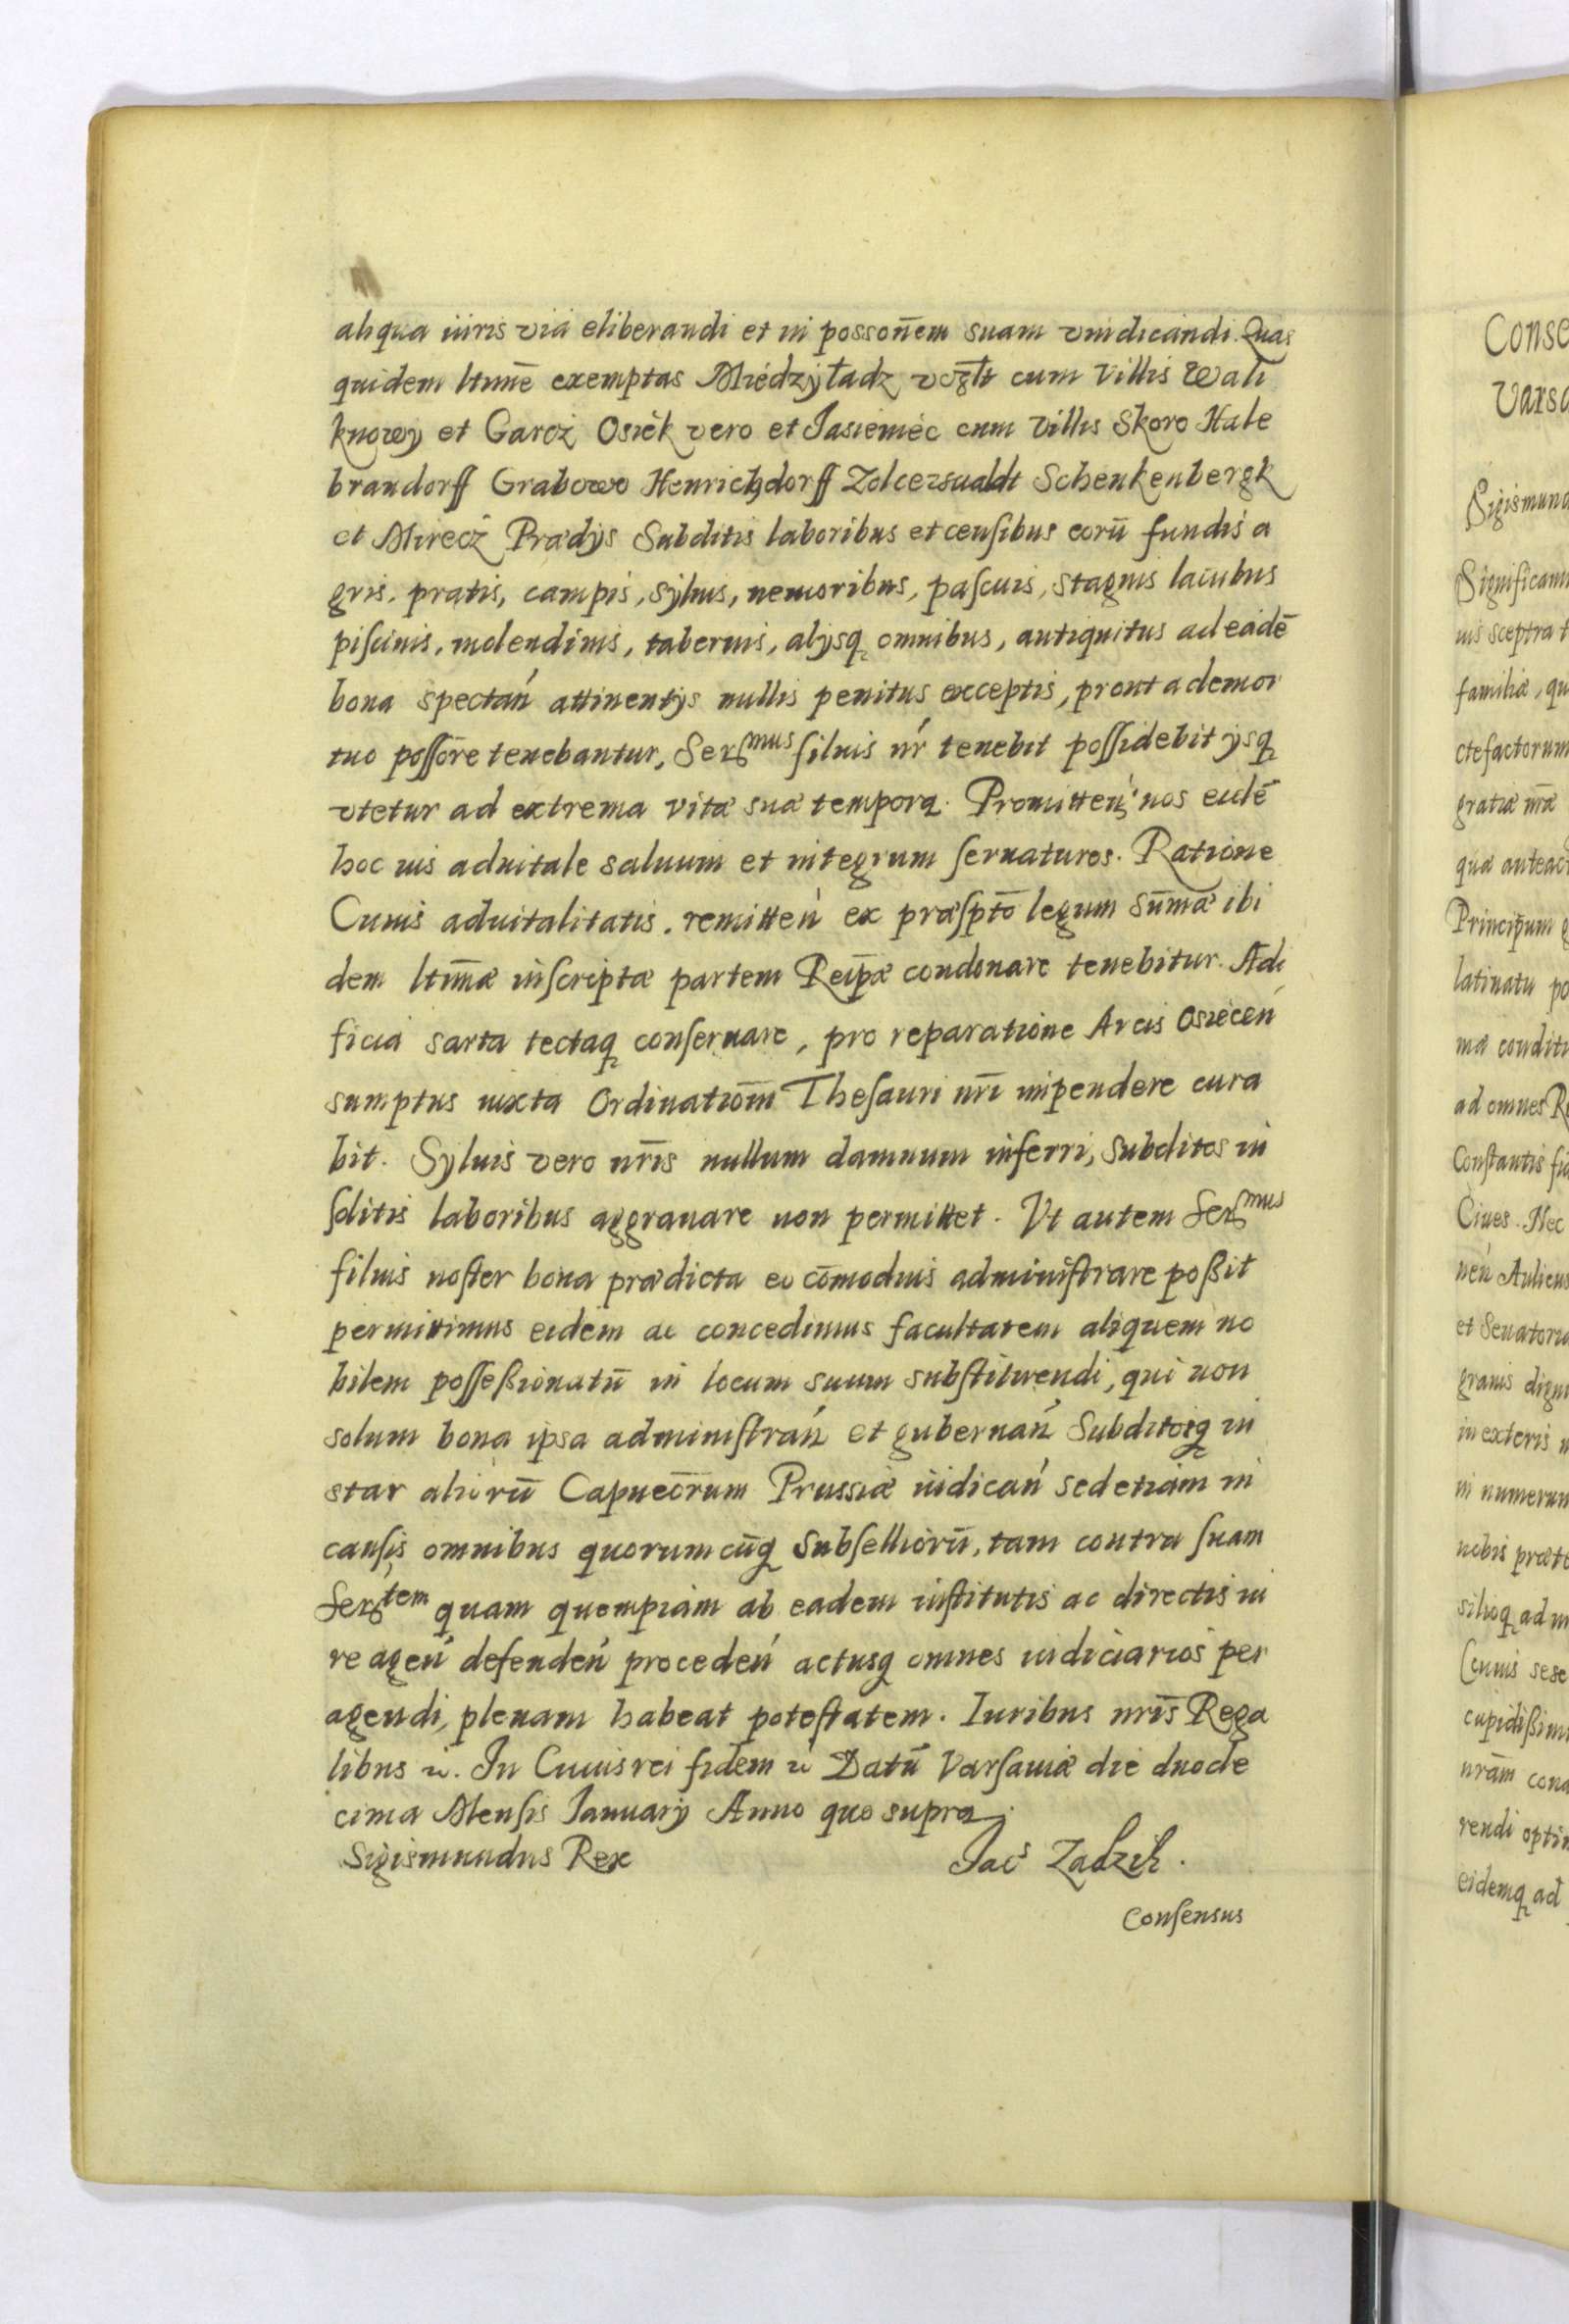 aliqua iuris via eliberandi et in possonem̄ suam vindicandi. Quas
quidem ltimē exemptas Miedzyładz vogłt cum Villis Wali
knowy et Garcz Osiek vero et Jasieniec cum Villis Skoro Hale
brandorff Grabowo Henrichdorff Zolcerswaldt Schenkenbergk
et Mirecz Prædÿs Subditis laboribus et censibus eorū fundis a
gris, pratis, campis, sylvis, nemoribus, pascuis, stagnis lacubus
piscinis, molendinis, tabernis, alÿsq omnibus, antiquitus ad eadē
bona spectan attinentÿs nullis penitus exceptis, prout a demor
tuo possōre tenebantur, Ser^mus filius nr tenebit possidebit ÿsq
vtetur ad extrema vitæ suæ tempora. Promitten nos eidē
hoc ius aduitale saluum et integrum seruaturos. Ratione
Cuius aduitalitatis. remitten ex præsptō legum sūmæ ibi
dem ltimæ inscriptæ partem Reipæ condonare tenebitur. Ædi
ficia sarta tectaq conseruare, pro reparatione Arcis Osiecen
sumptus iuxta Ordinatiōm Thesauri nrī impendere cura
bit. Syluis vero nrīs nullum damnum inferri, Subditos in
sditis laboribus aggrauare non permittet. Vt autem Ser^mus
filius noster bona prædicta eo cōmodius administrare poßit
permittimus eidem ac concedimus facultatem aliquem no
bilem posseßionatū in locum suum substituendi, qui non
solum bona ipsa administran et gubernan Subditosq in
star aliorū Capneōrum Prussiæ iudican sed etiam in
causis omnibus quorumcūq Subselliorū, tam contra suam
Ser^tem quam quempiam ab eadem institutis ac directis iu
re agen defenden proceden actusq omnes iudiciarios per
agendi, plenam habeat potestatem. Iuribus nrīs Rega
libus &. In Cuius rei fidem & Datū Varsauiæ die duode
cima Mensis Januarÿ Anno quo supra.
Sigismundus Rex
Jac^s Zadzik.
Consensus
Conse
Varsa
Sigismund
Significam
nis sceptra t
familiæ, qu
ctefactorum
gratiæ nrāe
quæ anteac
Principum
latinatu po
mæ conditi
ad omnes R
Constantis fi
Ciues. Nec
nen Aulicus
et Senatoria
grauis dign
in exteris n
in numerum
nobis præte
silioq ad
sese
cupidißim
nram cona
rendi optim
eidemq ad